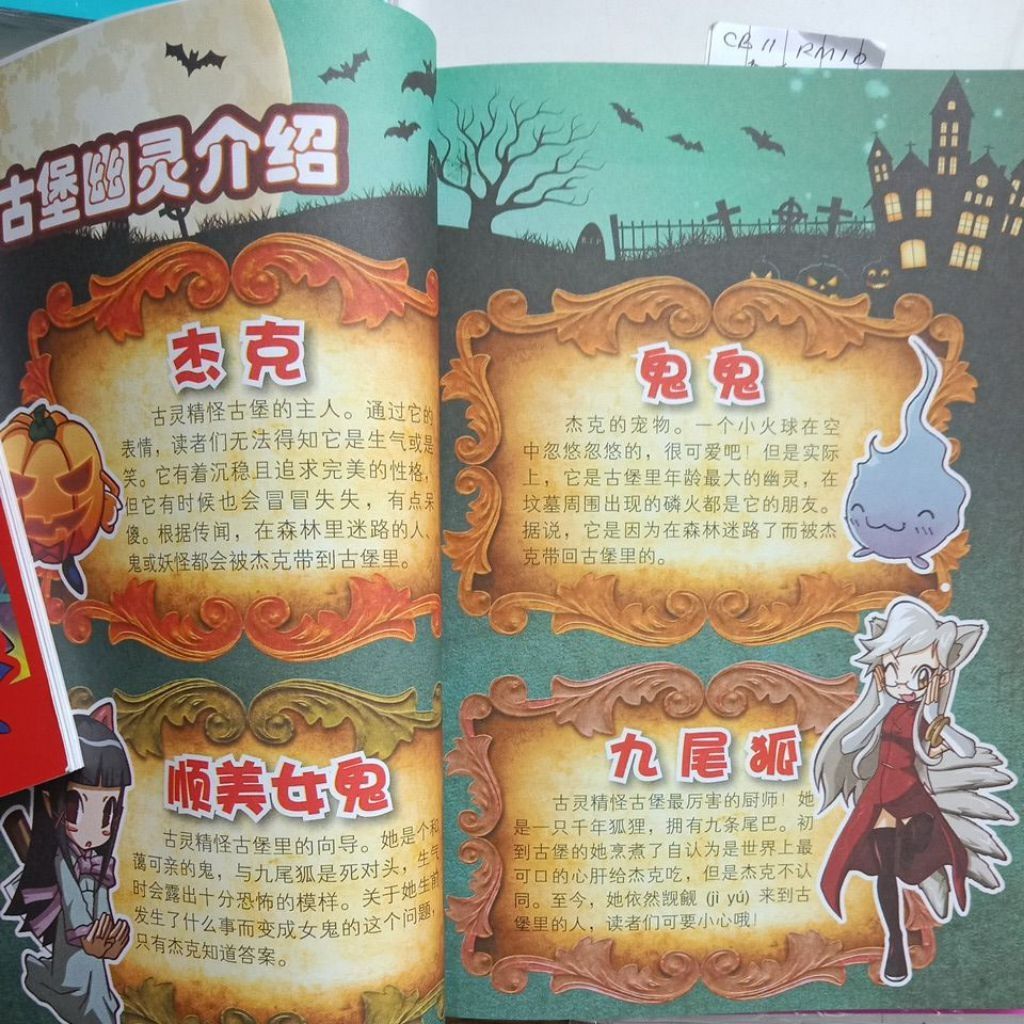 CB 11 RM10
古堡幽灵介绍
杰克
古灵精怪古堡的主人。通过它的
表情，读者们无法得知它是生气或是
笑。它有着沉稳且追求完美的性格，
但它有时候也会冒冒失失，有点呆
傻。根据传闻，在森林里迷路的人、
鬼或妖怪都会被杰克带到古堡里。
顺美女鬼
古灵精怪古堡里的向导。她是个和
蔼可亲的鬼，与九尾狐是死对头，生气
时会露出十分恐怖的模样。关于她生前
发生了什么事而变成女鬼的这个问题，
只有杰克知道答案。
鬼鬼
杰克的宠物。一个小火球在空
中忽悠忽悠的，很可爱吧！但是实际
上，它是古堡里年龄最大的幽灵，在
坟墓周围出现的磷火都是它的朋友。
据说，它是因为在森林迷路了而被杰
克带回古堡里的。
九尾狐
古灵精怪古堡最厉害的厨师！她
是一只千年狐狸，拥有九条尾巴。初
到古堡的她烹煮了自认为是世界上最
可口的心肝给杰克吃，但是杰克不认
同。至今，她依然觊觎 (jì yú) 来到古
堡里的人，读者们可要小心哦！